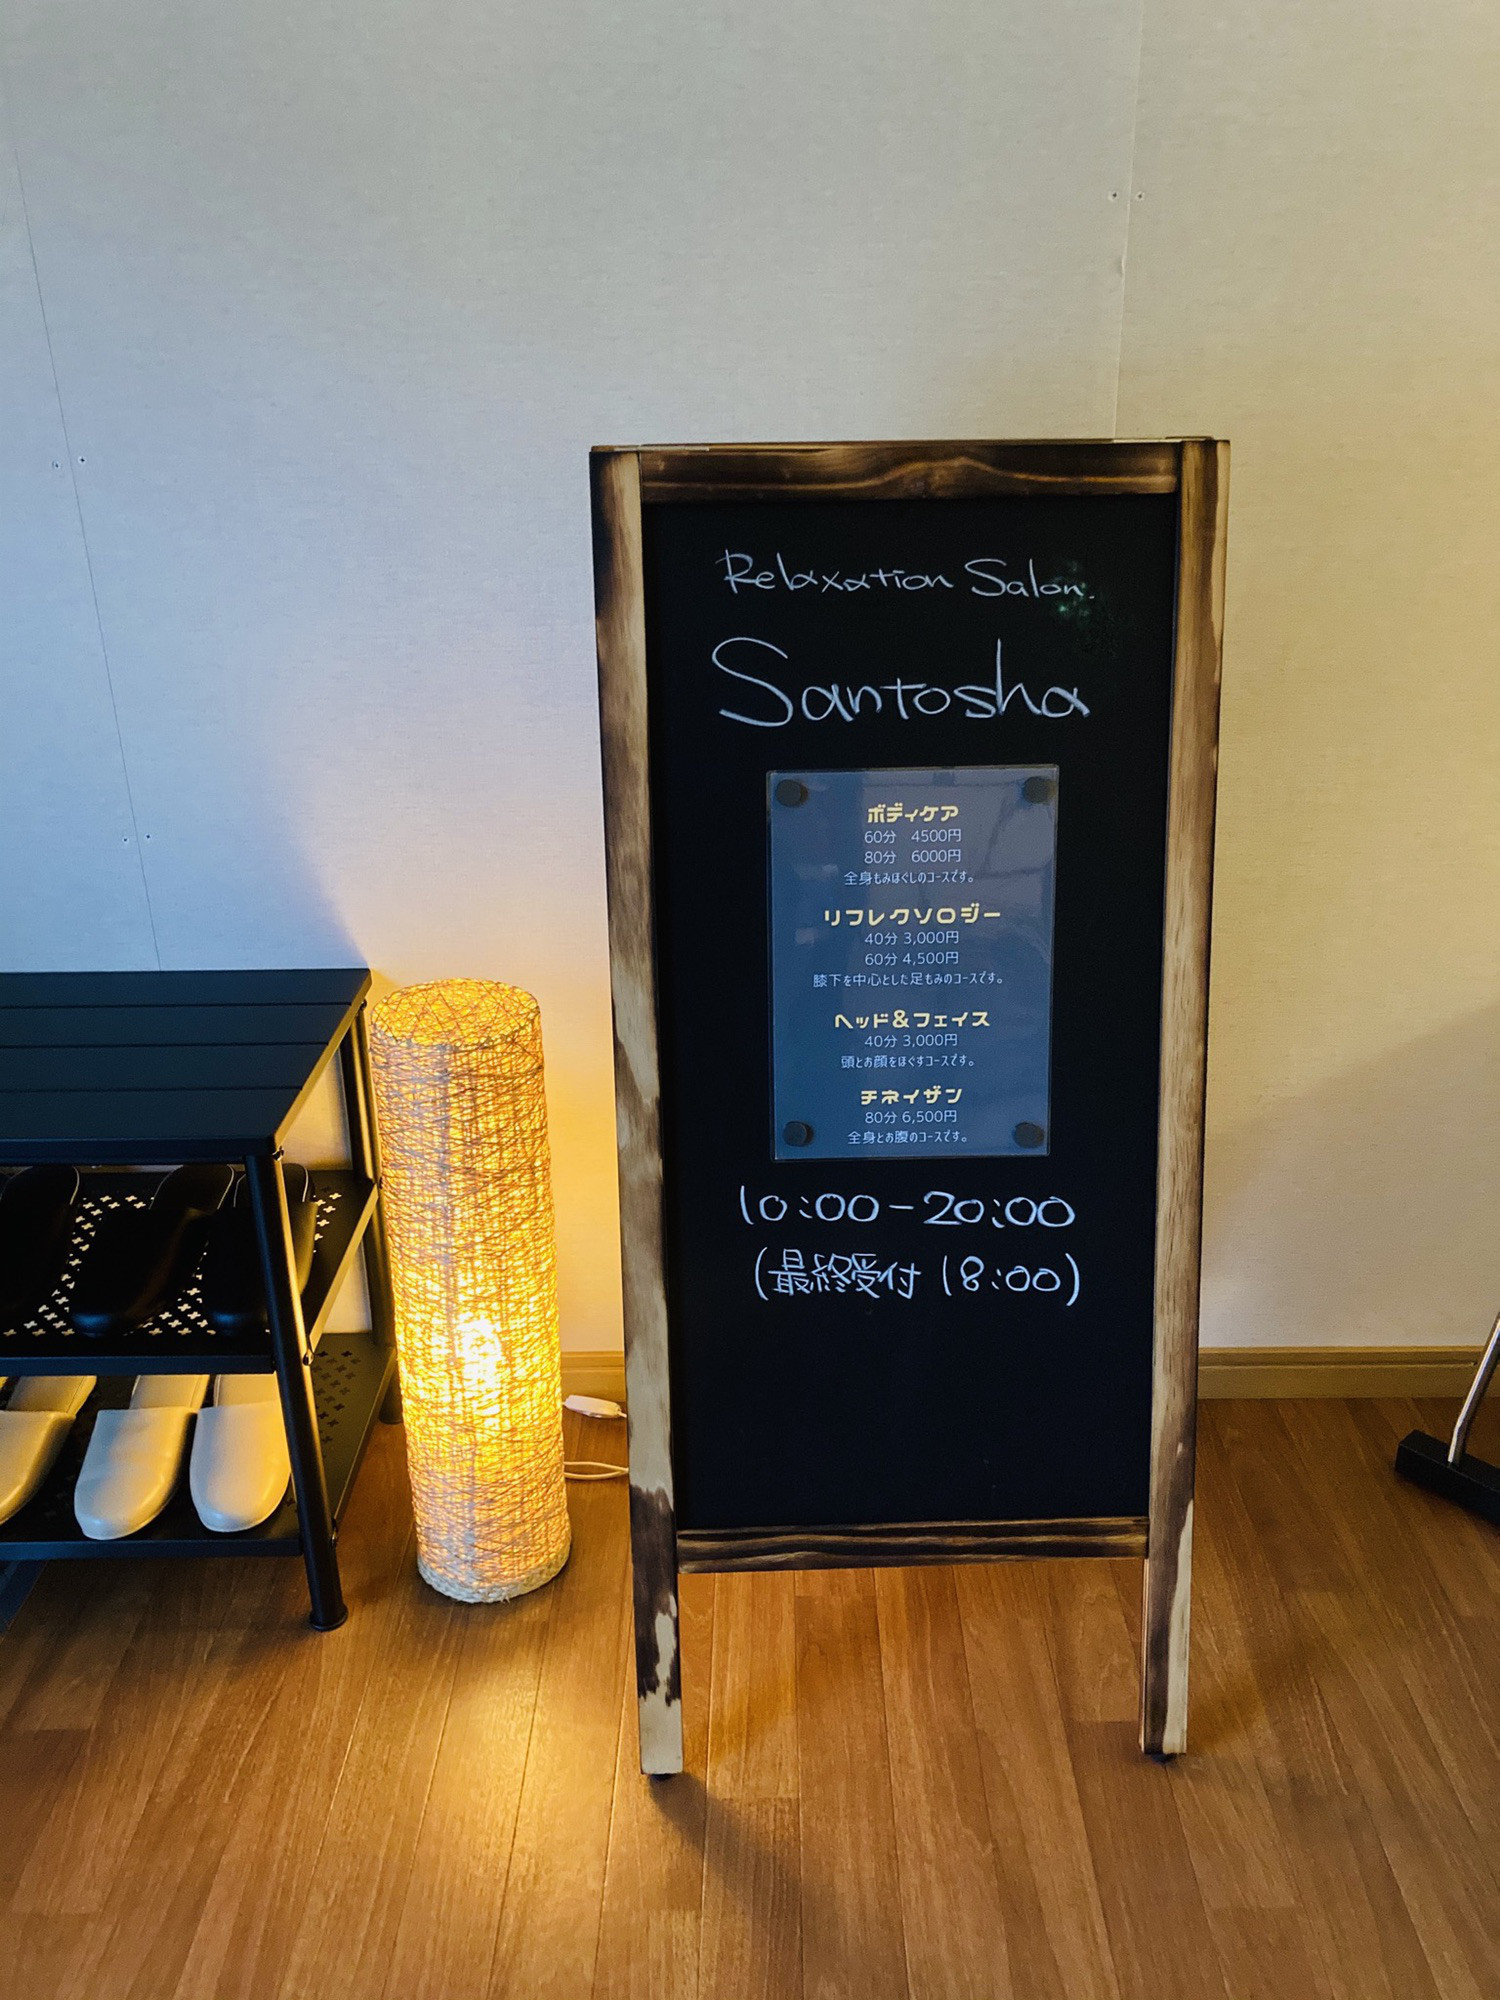 Relaxation Salon.
Santosha
ボディケア
60分　4500円
80分　6000円
全身もみほぐしのコースです。
リフレクソロジー
40分 3,000円
60分 4,500円
膝下を中心とした足もみのコースです。
ヘッド&フェイス
40分 3,000円
頭とお顔をほぐすコースです。
チネイザン
80分 6,500円
全身とお腹のコースです。
10:00-20:00
(最終受付 18:00)